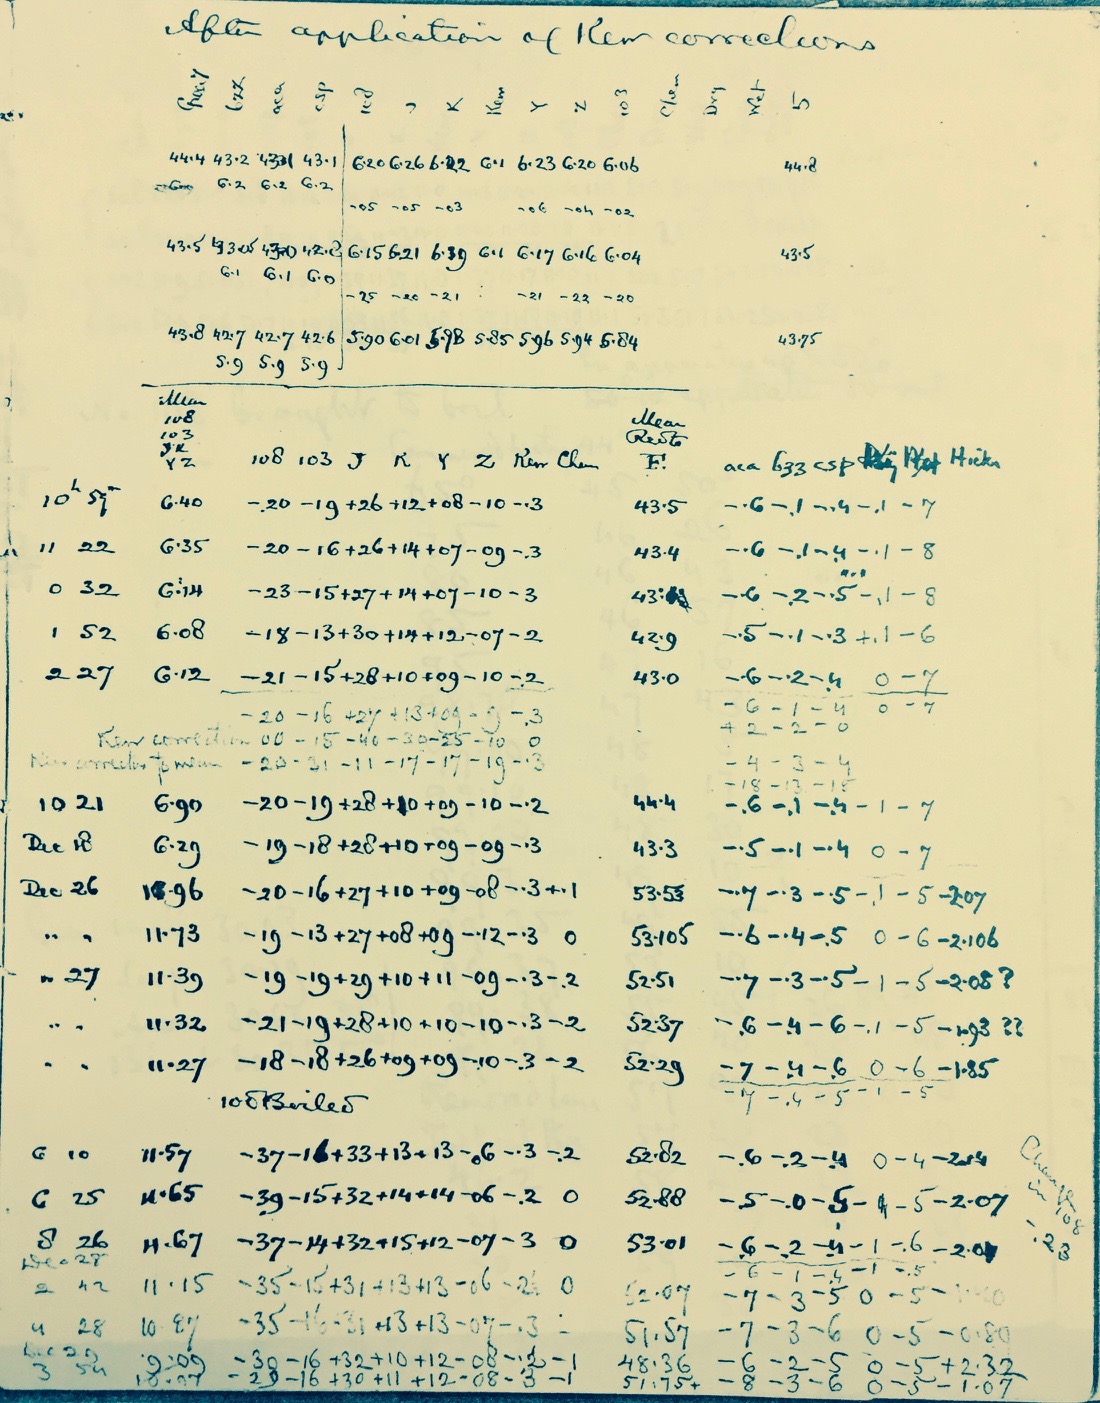 After application of Kew corrections
633 aca csp 108 J K Kew Y Z 103 Chem Dry Wet
44.4 43.2 43.1 6.20 6.26 6.22 6.1 6.23 6.20 6.06 44.8
6.2 6.2 6.2
-05 -05 -03 -06 -04 -02
43.5 43.05 42.8 6.15 6.21 6.39 6.1 6.17 6.16 6.04 43.5
6.1 6.1 6.0
-25 -20 -21 -21 -22 -20
43.8 42.7 42.7 42.6 5.90 6.01 5.98 5.85 5.96 5.94 5.84 43.75
5.9 5.9 5.9
Mean
108
103
JK
YZ
Mean
Redto
F.
108 103 J K Y Z Kew Chem aca 633 csp Dry Wet Hicks
10h 59m 6.40 -.20 -19 +26 +12 +08 -10 -.3 43.5 -.6 -.1 -.4 -.1 -7
11 22 6.35 -20 -16 +26 +14 +07 -09 -.3 43.4 -.6 -.1 -.4 -.1 -8
0 32 6.14 -23 -15 +27 +14 +07 -10 -3 -.6 -.2 -.5 -.1 -8
1 52 6.08 -18 -13 +30 +14 +12 -07 -2 42.9 -.5 -.1 -.3 +.1 -6
2 27 6.12 -21 -15 +28 +10 +09 -10 -.2 43.0 -.6 -.2 -.4 0 -7
-20 -16 +27 +13 +09 -9 -.3 -6 -1 -4 0 -7
Kew correction 00 -15 -40 -30 -25 -10 0 +2 -2 -0
Kew correction to mean -20 -31 -11 -17 -17 -19 -.3 -4 -3 -4
-18 -13 -15
10 21 6.90 -20 -19 +28 +10 +09 -10 -.2 44.4 -.6 -.1 -.4 -1 -7
Dec 18 6.29 -19 -18 +28 +10 +09 -09 -.3 43.3 -.5 -.1 -.4 0 -7
Dec 26 -20 -16 +27 +10 +09 -08 -.3 +.1 53.53 -.7 -.3 -.5 -.1 -5 -2.07
" " 11.73 -19 -13 +27 +08 +09 -.12 -.3 0 53.105 -.6 -.4 -.5 0 -6 -2.106
" 27 11.39 -19 -19 +29 +10 +11 -09 -.3 -.2 52.51 -.7 -.3 -.5 -1 -5 -2.08 ?
" " 11.32 -21 -19 +28 +10 +10 -10 -.3 -2 52.37 -.6 -.4 -6 -.1 -5 -1.93 ??
" " 11.27 -18 -18 +26 +09 +09 -.10 -.3 -2 52.29 -7 -.4 -.6 0 -6 -1.85
-7 -.4 -5 -1 -5
108 Boiled
6 10 11.57 -37 -16 +33 +13 +13 -.06 -.3 -.2 52.82 -.6 -.2 -.4 0 -4 -2.14
6 25 11.65 -39 -15 +32 +14 +14 -06 -.2 0 52.88 -.5 -.0 -.5 -5 -2.07
8 26 11.67 -37 -14 +32 +15 +12 -07 -3 0 53.01 -.6 -.2 -.4 -1 -.6
-6 -1 -.4 -1 -.5
Change
in 108
-.23
Dec 28
2 42 11.15 -35 -15 +31 +13 +13 -06 -.2 0 52.07 -7 -3 -5 0 -5
4 28 10.87 -35 -16 +31 +13 +13 -07 -.3 51.57 -7 -3 -6 0 -5 -0.80
Dec 29 9.09 -30 -16 +32 +10 +12 -08 -.2 -1 48.36 -6 -2 -5 0 -5 +2.32
3 54 -29 -16 +30 +11 +12 -08 -3 -1 51.75+ -8 -3 -6 0 -5 -1.07